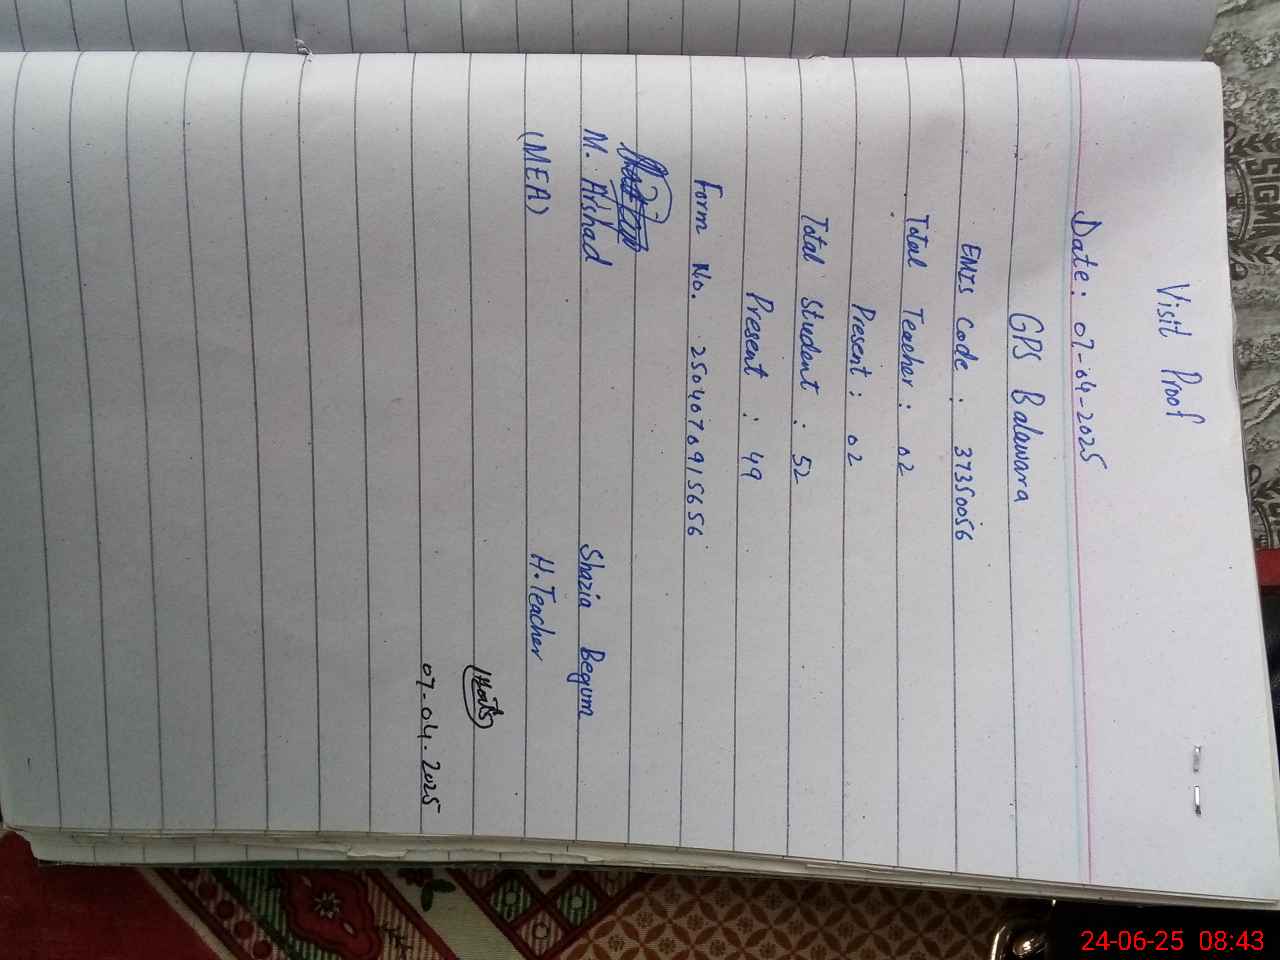 Visit Proof
Date: 07-04-2025
GPS Balawara
EMIS Code : 37350056
Total Teacher : 02
Present : 02
Total Student : 52
Present : 49
Form No. 2504070915656
M. Arshad
(MEA)
Shazia Begum
H. Teacher
07-04.2025
24-06-25 08:43